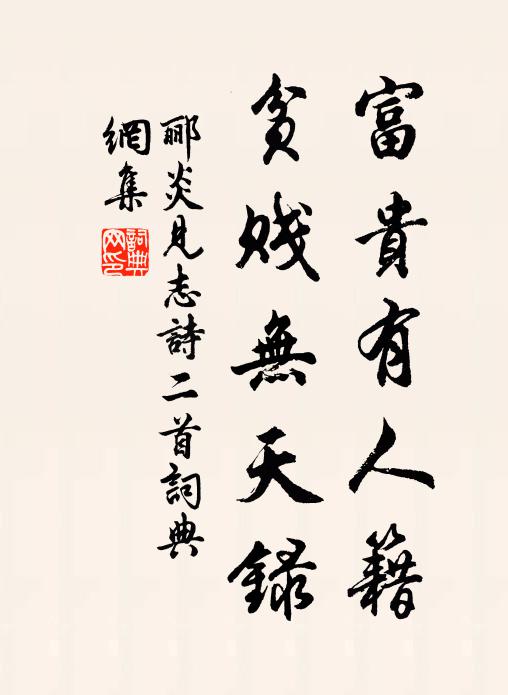 富貴有人籍
貧賤無天錄
郦炎見志詩二首詞典
網集
詞典
网印